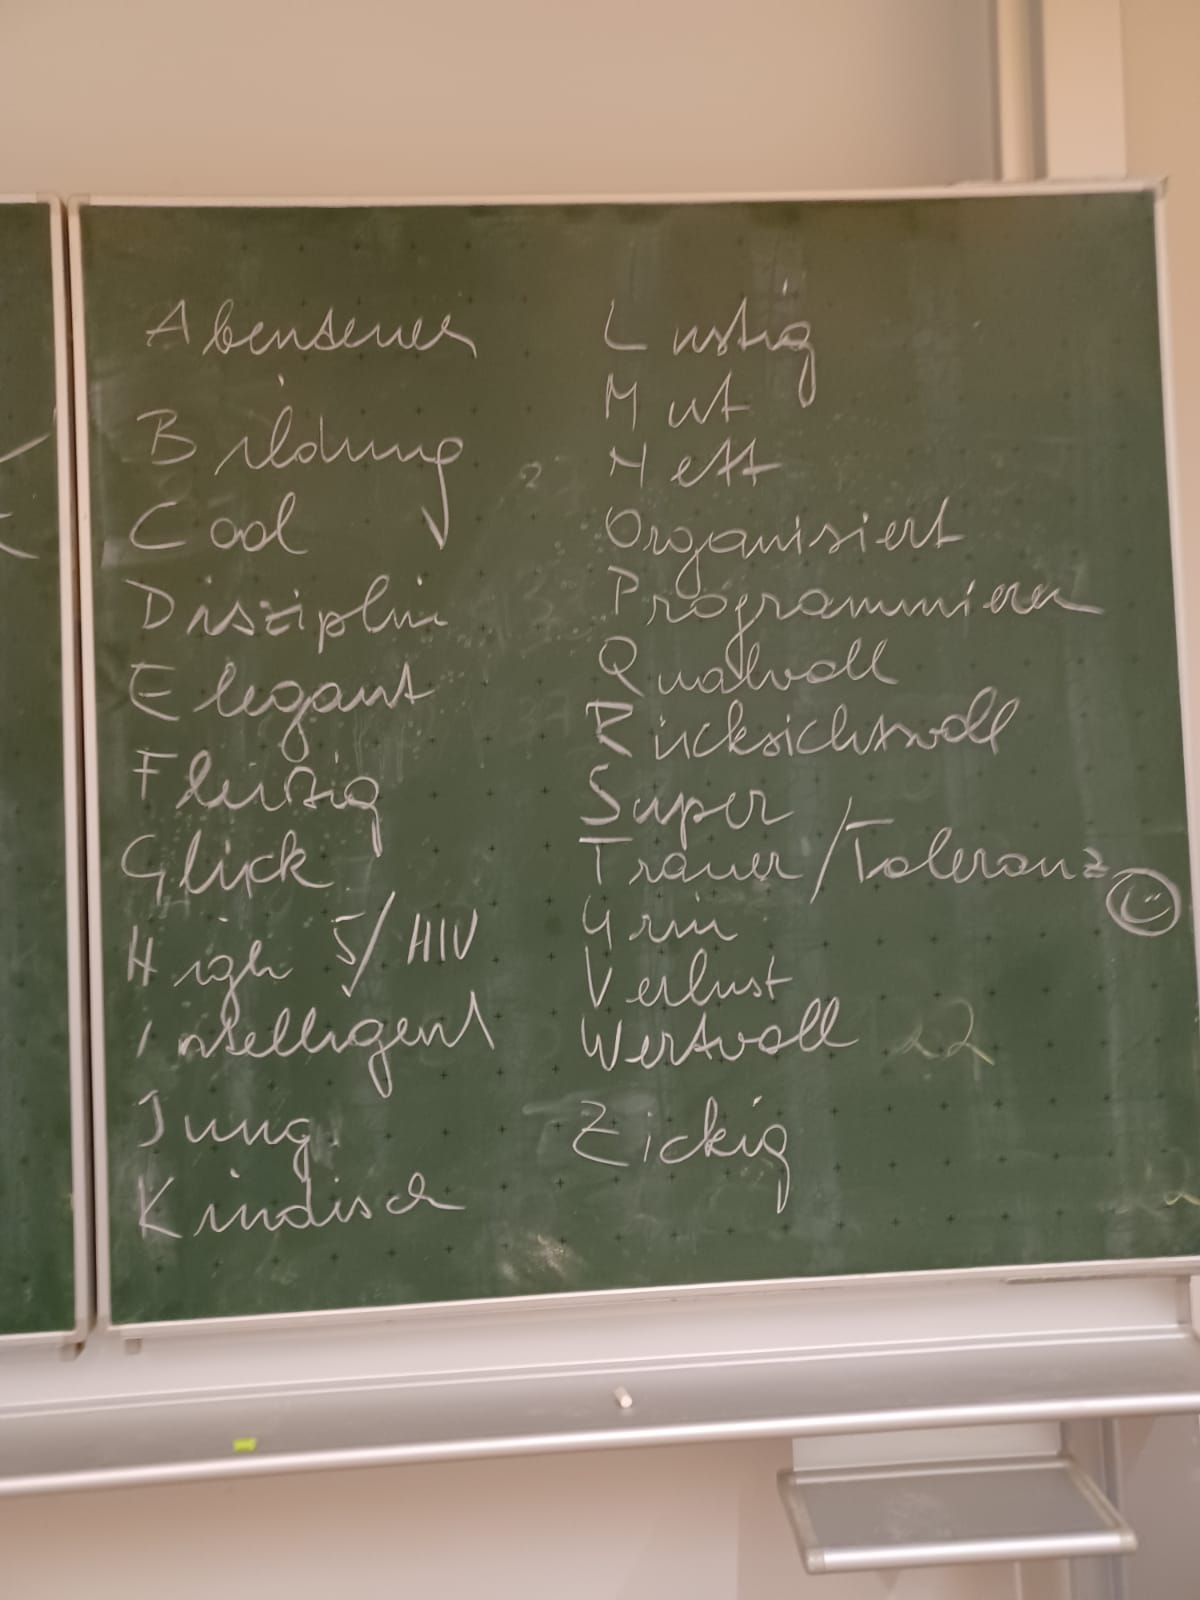 Abenteuer
Bildung
Cool
Disziplin
Elegant
Fleißig
Glück
High 5/HIV
Intelligent
Jung
Kindisch
Lustig
Mut
Nett
Organisiert
Programmieren
Qualvoll
Rücksichtsvoll
Super
Trauer/Toleranz
Verlust
Wertvoll
22
Zickig